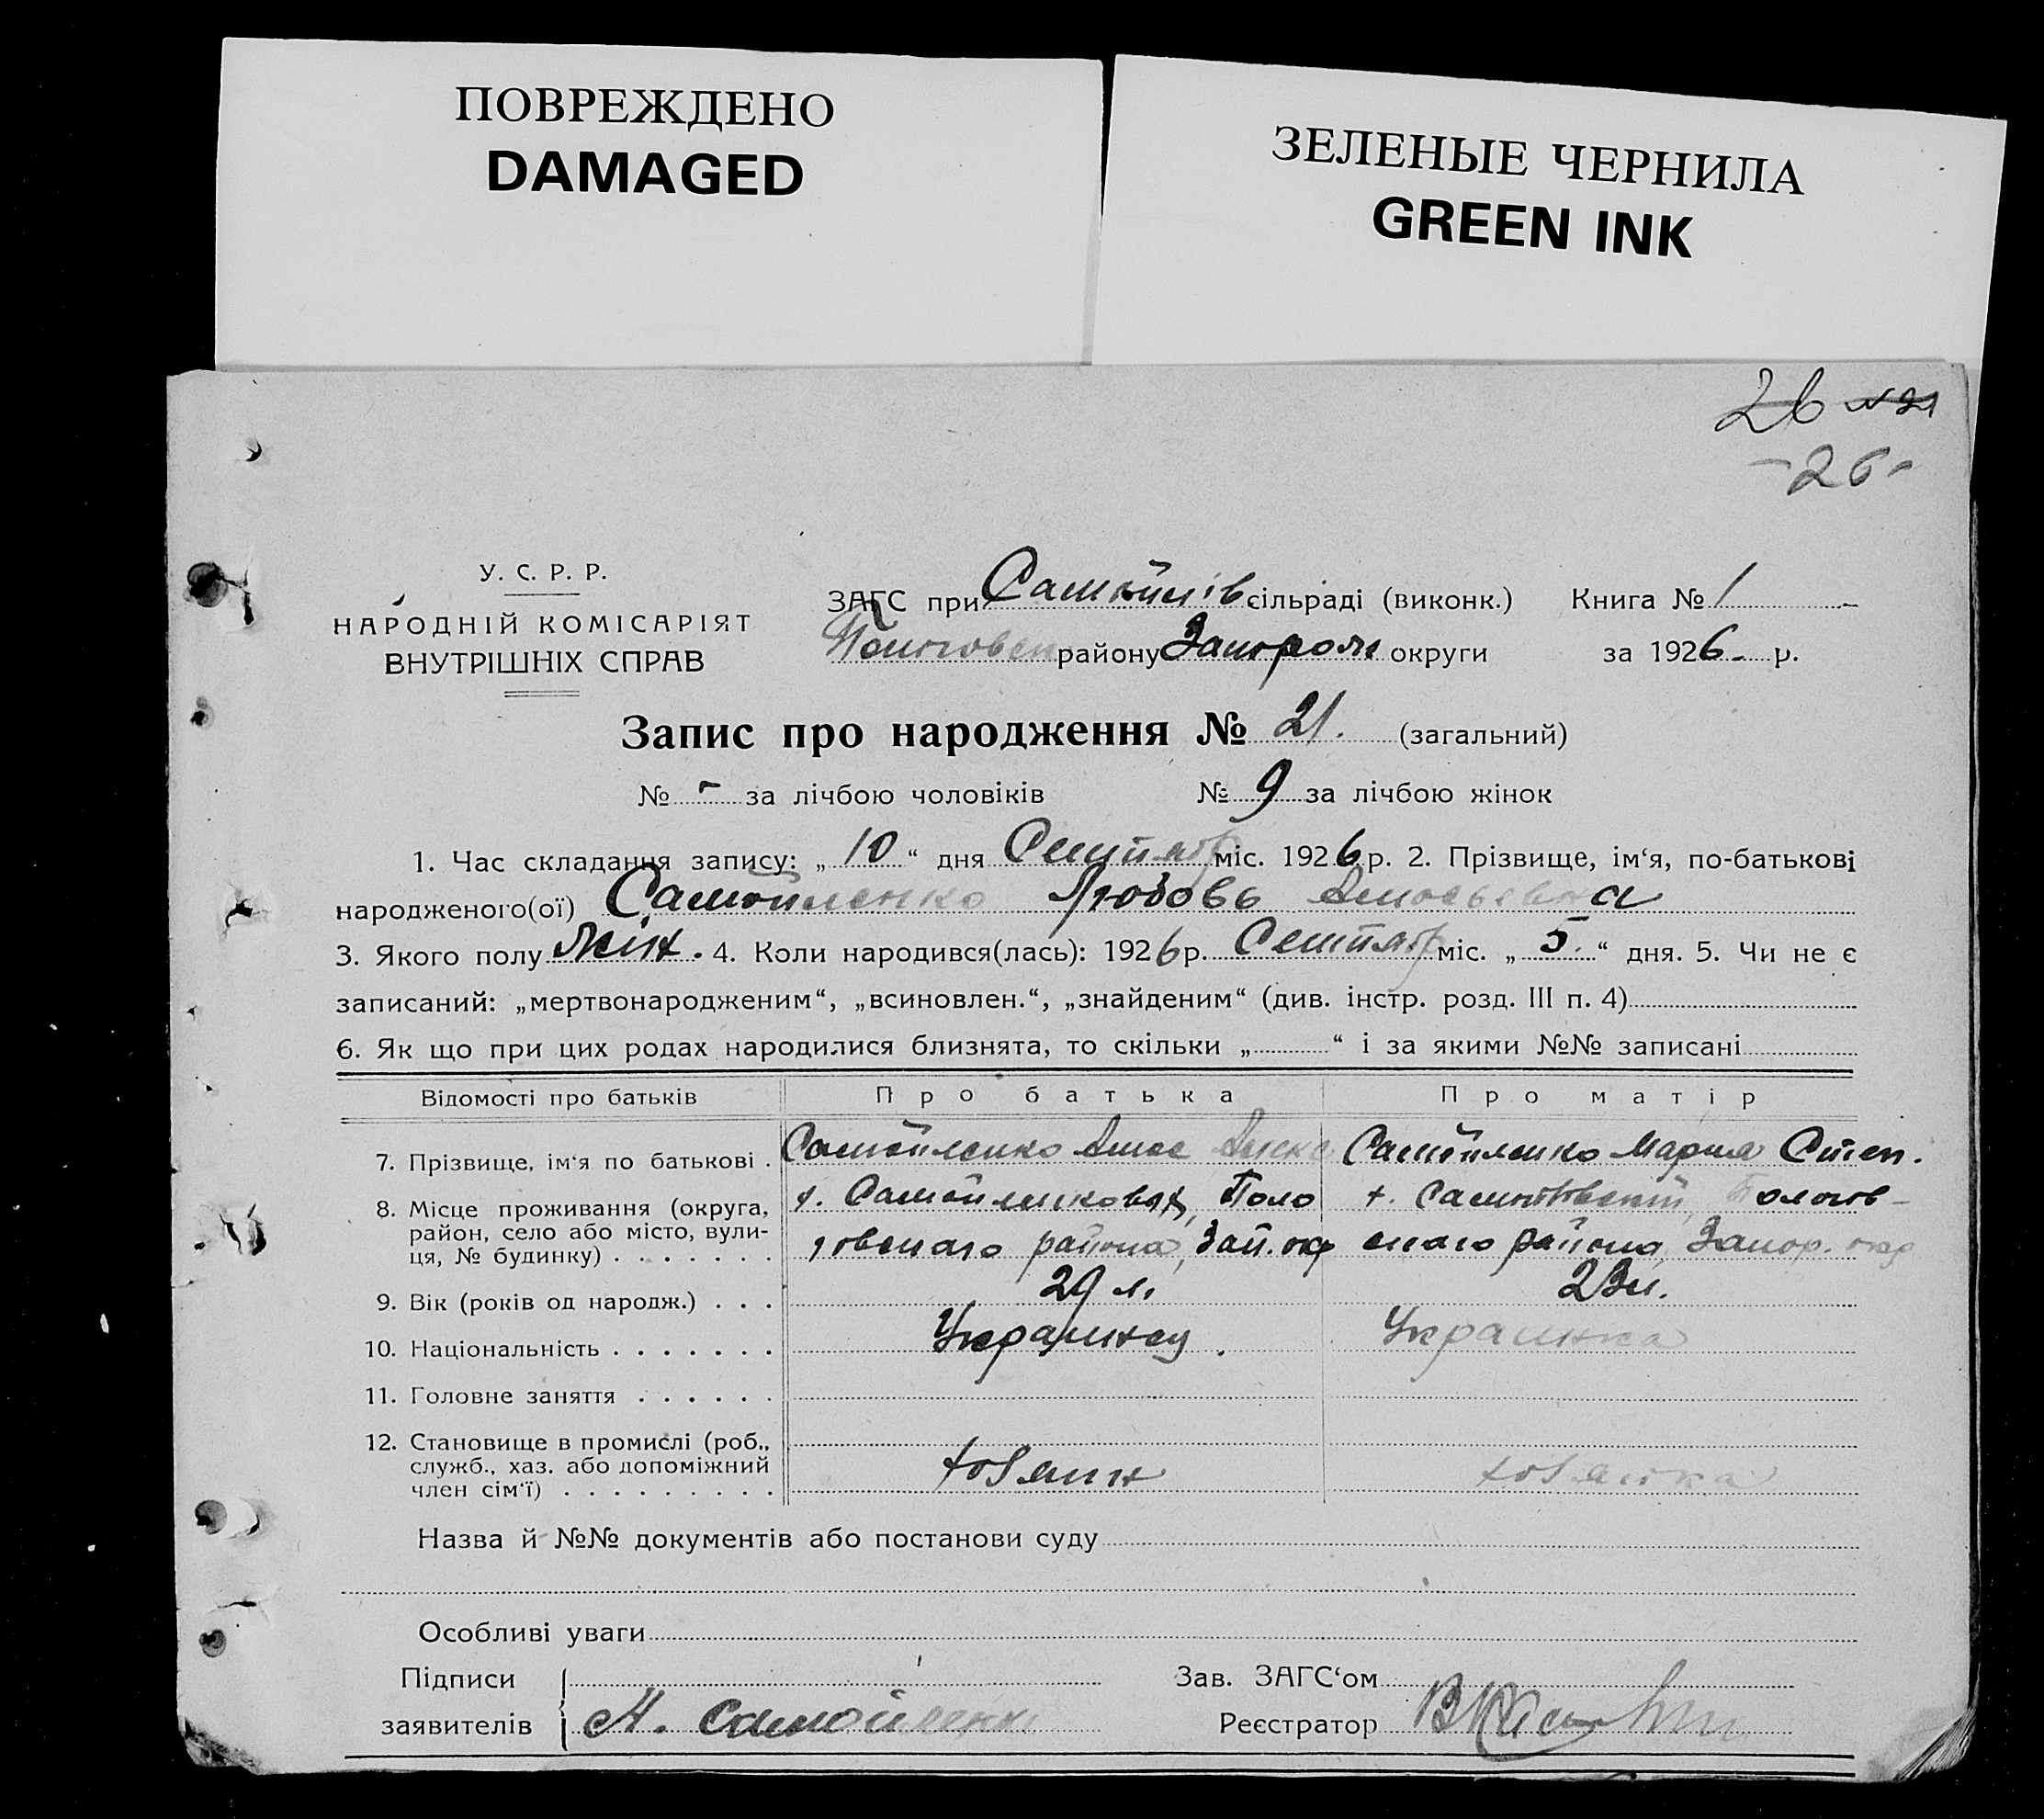 ПОВРЕЖДЕНО
DAMAGED
ЗЕЛЕНЫЕ ЧЕРНИЛА
GREEN INK
26 №21
-26-
У. С. Р. Р.
НАРОДНІЙ КОМІСАРІЯТ
ВНУТРІШНІХ СПРАВ
ЗАГС при Самойлів сільраді (виконк.) Книга № 1
району Запорож округи за 1926 р.
Запис про народження № 21. (загальний)
№ - за лічбою чоловіків № 9 за лічбою жінок
1. Час складання запису: „ 10 “ дня міс. 1926 р. 2. Прізвище, ім‘я, по-батькові
народженого(ої) Самойленко Любовь Амосьевна
3. Якого полу жін. 4. Коли народився(лась): 1926 р. міс. „ 5. “ дня. 5. Чи не є
записаний: „мертвонародженим“, „всиновлен.“, „знайденим“ (див. інстр. розд. III п. 4)
6. Як що при цих родах народилися близнята, то скільки „ “ і за якими №№ записані
Відомості про батьків Про батька Про матір
7. Прізвище, ім‘я по батькові . Самойленко Амос Самойленко Мария Степ.
8. Місце проживання (округа, х. Поло х. Пологов-
район, село або місто, вули-
ця, № будинку) . . . . . . . говскаго района, Зап. окр скаго района, Запор. окр
9. Вік (років од народж.) . . . 29 л. 23 л.
10. Національність . . . . . . . Украинец. Украинка
11. Головне заняття . . . . . .
12. Становище в промислі (роб.,
служб., хаз. або допоміжний
член сім‘ї) . . . . . . . . . хозяин хозяйка
Назва й №№ документів або постанови суду
Особливі уваги
Підписи Зав. ЗАГС‘ом
заявителів А. Самойленко Реєстратор